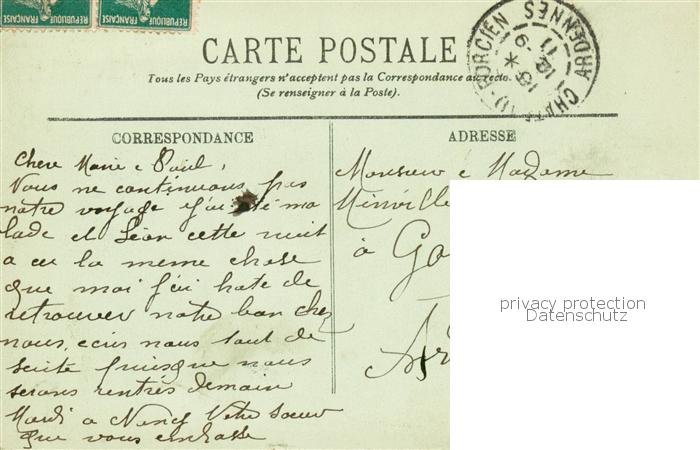 REPUBLIQUE FRANÇAISE REPUBLIQUE FRANÇAISE
CHAT PORCIEN ARDENNES
CARTE POSTALE
Tous les Pays étrangers n'acceptent pas la Correspondance au recto.
(Se renseigner à la Poste).
CORRESPONDANCE
Chere Marie e Paul,
Vous ne continuons pas
notre voyage j'ai été ma
lade et Léon cette nuit
a eu la meme chose
que moi j'ai hate de
retrouver notre ban chez
nous, ecris nous tout de
suite puisque nous
serons rentrés demain
Mardi a Vetre soeur
que vous embrasse
ADRESSE
Monsieur e Madame
Minville
à
privacy protection
Datenschutz